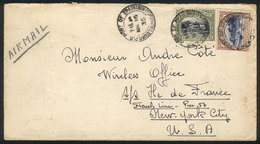 AIRMAIL
Monsieur Andre Côté
Wireless Office
S/S Ile de France
French Line - Pier 57
New-York City
U.S.A